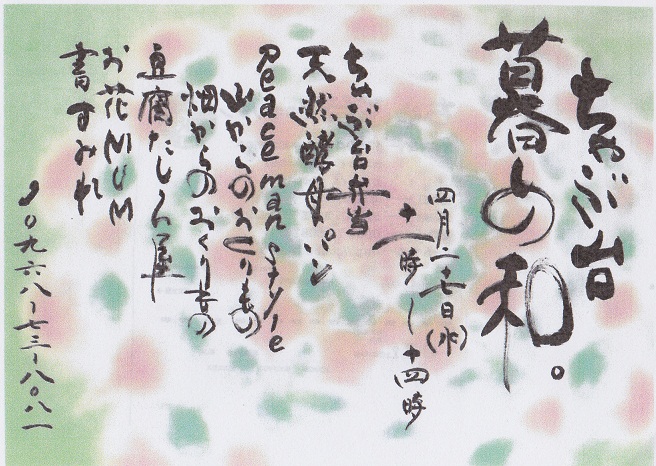 ちゃぶ台
暮らの和。
四月二十七日(水)
十一時〜十四時
ちゃぶ台弁当
天然酵母パン
Peace man style
山からのおくりもの
畑からのおくりもの
豆腐たしろ屋
お花MUM
書すみれ
〇九六八ー七三ー八〇八一